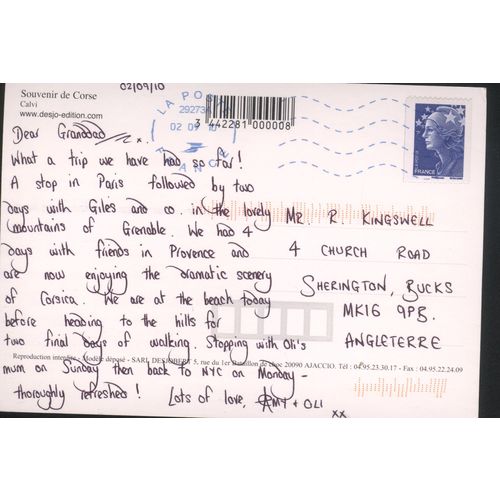 02/09/10
Souvenir de Corse
Calvi
www.desjo-edition.com
LA POSTE
29273A
02 09 10
FRANCE
3 442281 000008
FRANCE
Dear Granddad x.
What a trip we have had so far!
A stop in Paris followed by two
days with Giles and co. in the lovely
mountains of Grenable. We had 4
days with friends in Provence and
are now enjoying the dramatic scenery
of Corsica. We are at the beach today
before heading to the hills for
two final days of walking. Stopping with Oli's
mum on Sunday then back to NYC on Monday -
thoroughly refreshed! Lots of love, AMY + OLI
xx
MR. R. KINGSWELL
4 CHURCH ROAD
SHERINGTON, BUCKS
MK16 9PB.
ANGLETERRE
Reproduction interdite - Modèle déposé - SARL DESJOBERT 5, rue du 1er Bataillon de choc 20090 AJACCIO. Tél : 04.95.23.30.17 - Fax : 04.95.22.24.09